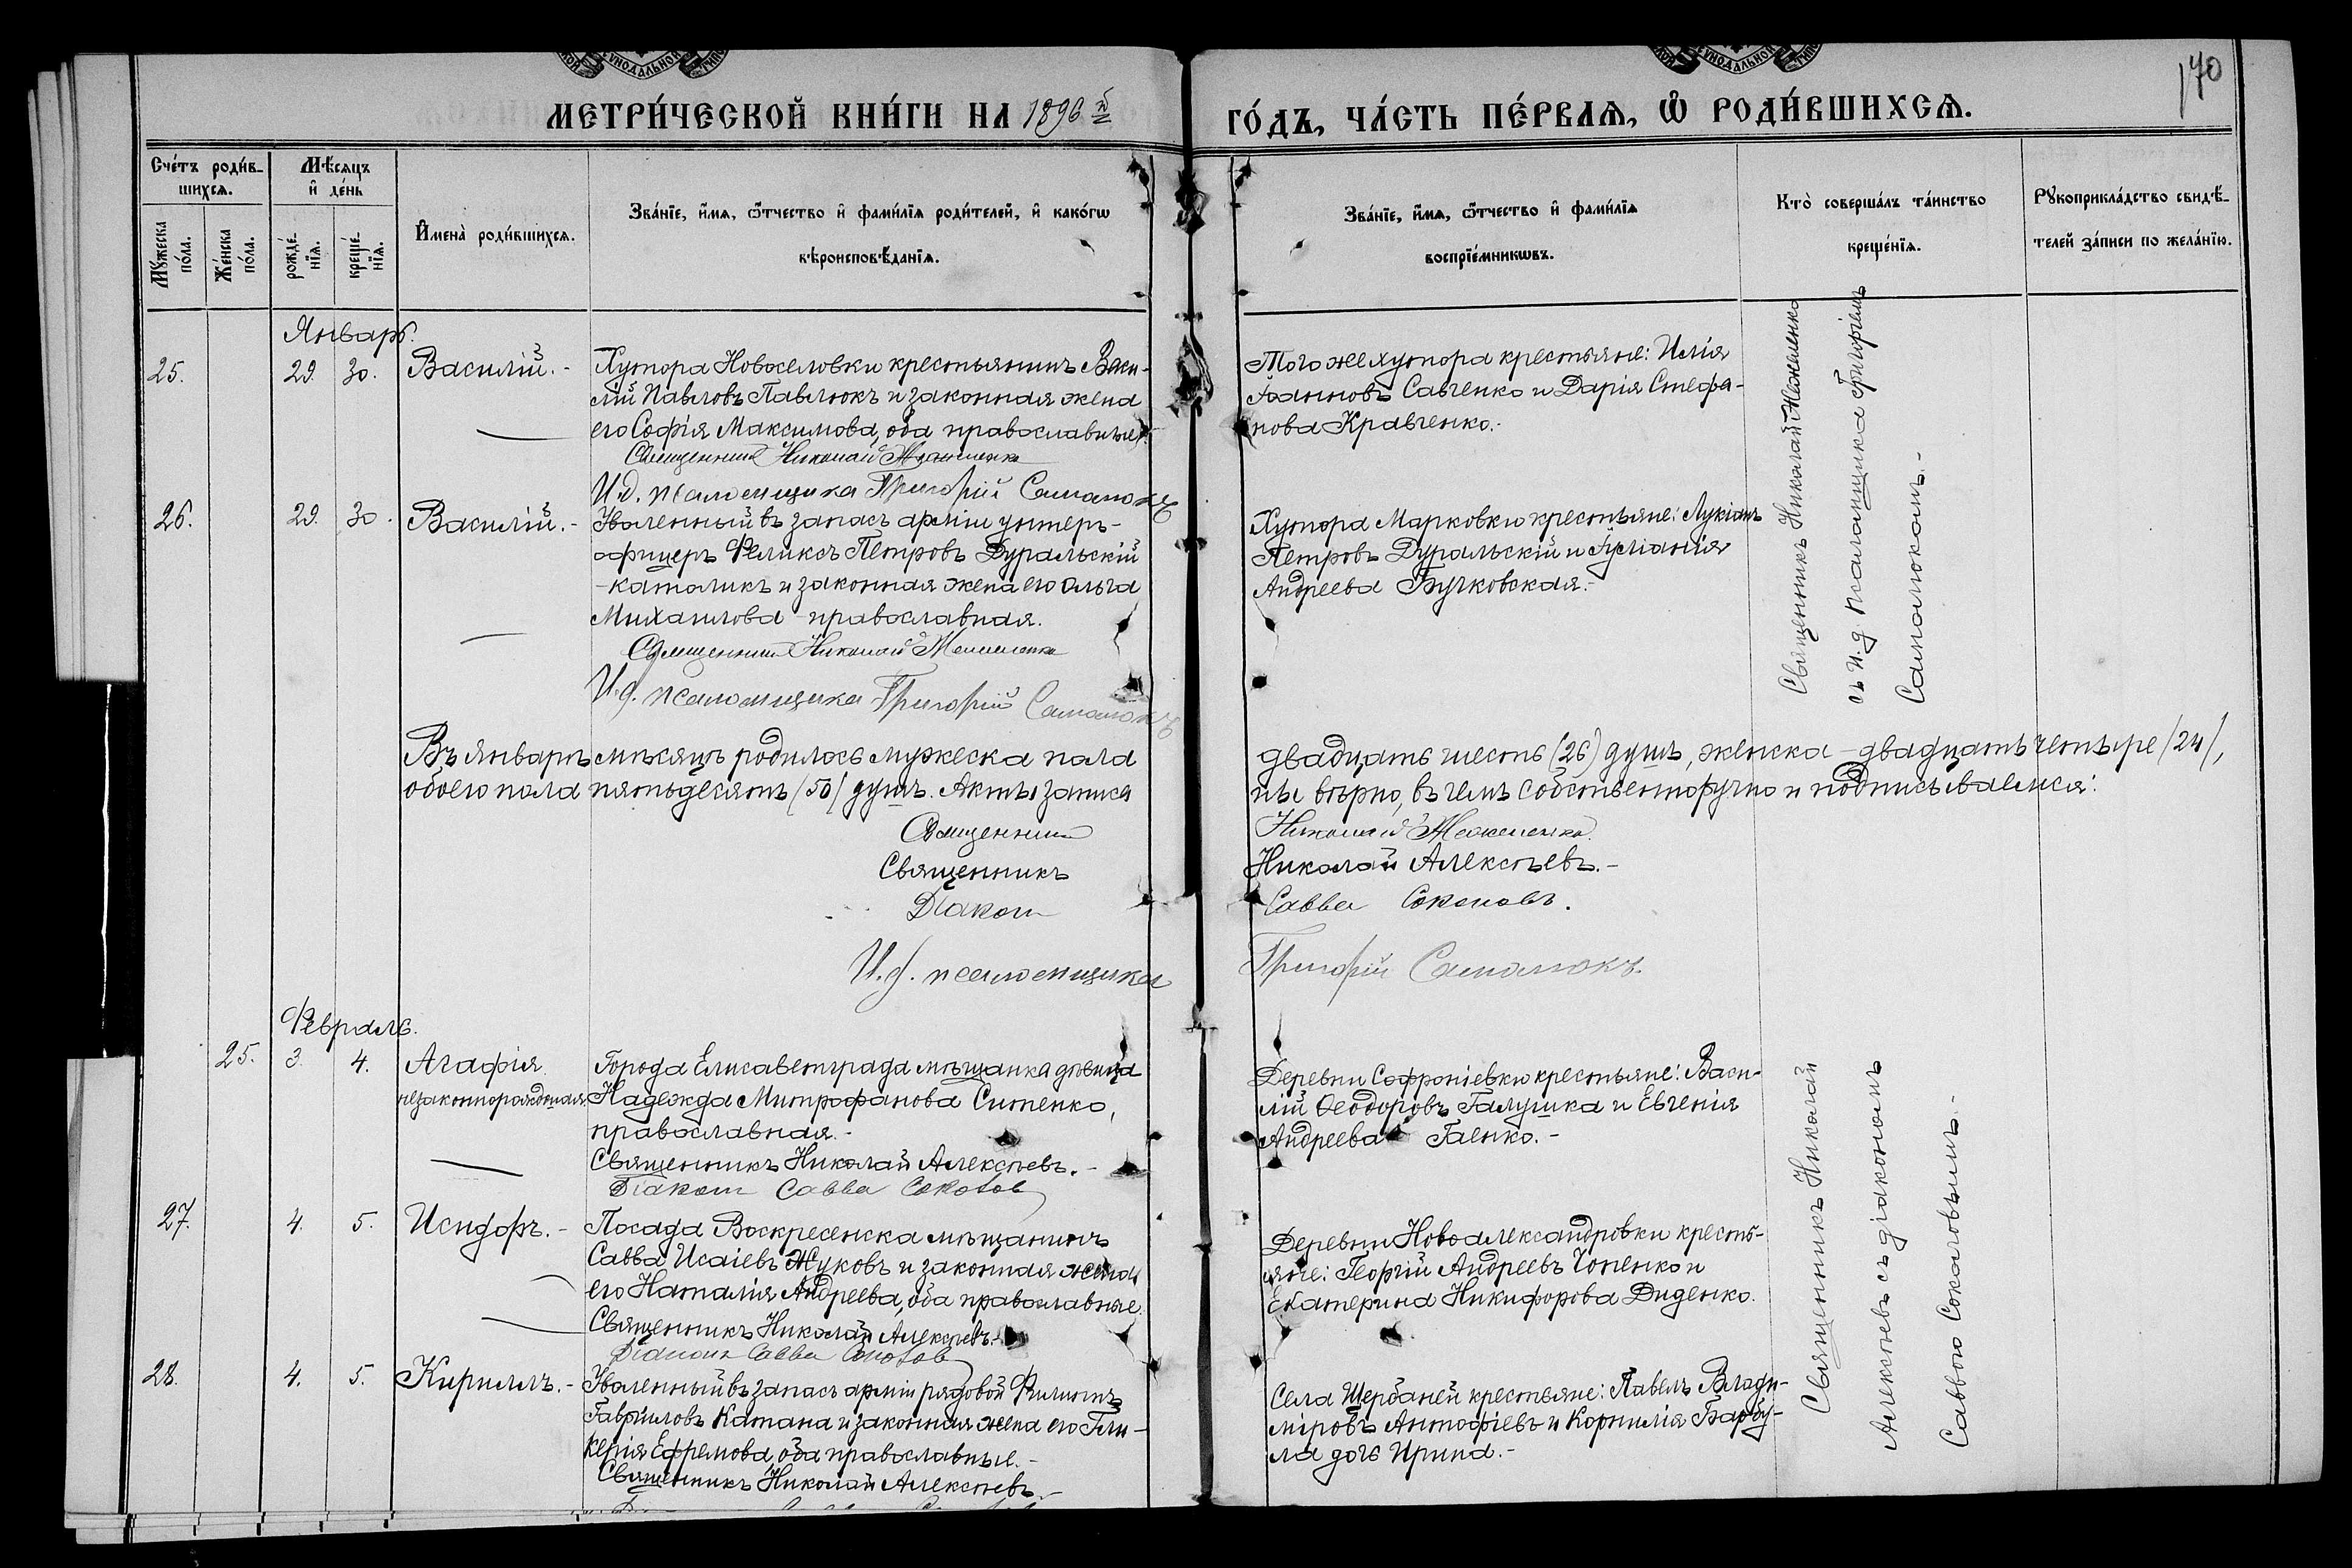 170
МЕТРИ́ЧЕСКОЙ КНИ́ГИ НА 1896й ГО́ДЪ, ЧА́СТЬ ПЕ́РВАѦ, Ѡ҆ РОДИ́ВШИХСѦ.
Сче́тъ роди́в-
шихсѧ.
Му́жеска по́ла.
Же́нска по́ла.
Мѣ́сѧцъ и҆ де́нь
рожде́нїѧ.
креще́нїѧ.
И҆мена̀ роди́вшихсѧ.
Зва́нїе, и҆́мѧ, ѻ҆́тчество и҆ фами́лїѧ роди́телей, и҆ како́гѡ
вѣроисповѣ́данїѧ.
Зва́нїе, и҆́мѧ, ѻ҆́тчество и҆ фами́лїѧ
воспрїе́мникѡвъ.
Кто̀ соверша́лъ та́инство
креще́нїѧ.
Рꙋкоприкла́дство свидѣ́-
телей за́писи по жела́нїю.
Январь.
25. 29. 30. Василій. -
Хутора Новоселовки крестьянинъ Васи-
лій Павловъ Павлюкъ и законная жена
его Софія Максимова, оба православные.
Священникъ Николай
И.д. псаломщика Григорій Самалюкъ
Того же хутора крестьяне: Илія
Іоанновъ Савченко и Дарія Стефа-
нова Кравченко.-
Священникъ Николай
съ и. д. псаломщика Григоріемъ
Самалюкомъ.-
26. 29. 30. Василій. -
Уволенный въ запасъ арміи унтеръ-
офицеръ Феликсъ Петровъ Дуральскій
- католикъ и законная жена его Ольга
Михаилова - православная.
Священникъ Николай
И.д. псаломщика Григорій Самалюкъ
Хутора Марковки крестьяне: Лукіанъ
Петровъ Дуральскій и Іуліанія
Андреева Бучковская.-
Въ январѣ мѣсяцѣ родилось мужеска пола двадцать шесть (26) душъ, женска - двадцать четыре /24/,
обоего пола пятьдесятъ /50/ душъ. Акты записа ны вѣрно, въ чемъ собственноручно и подписываемся:
Священникъ Николай
Священникъ Николай Алексѣевъ.-
Діаконъ Савва Соколовъ.
И.д. псаломщика Григорій Самалюкъ
Февраль.
25. 3. 4. Агафія
незаконнорожденная.
Города Елисаветграда мѣщанка дѣвица
Надежда Митрофанова Ситенко,
православная.-
Священникъ Николай Алексѣевъ.-
Діаконъ Савва Соколов
Деревни Софроніевки крестьяне: Васи-
лій Ѳеодоровъ Галушка и Евгенія
Андреева Гаенко.-
Священникъ Николай
Алексѣевъ съ діакономъ
Саввою Соколовымъ.-
27. 4. 5. Исидоръ. -
Посада Воскресенска мѣщанинъ
Савва Исаіевъ Жуковъ и законная жена
его Наталія Андреева, оба православные.
Священникъ Николай Алексѣевъ.-
Діаконъ Савва Соколов
Деревни Новоалександровки кресть-
яне: Георгій Андреевъ Чопенко и
Екатерина Никифорова Диденко.
28. 4. 5. Кириллъ. -
Уволенный въ запасъ арміи рядовой Филиппъ
Гавріиловъ Катана и законная жена его Гли-
керія Ефремова, оба православные.-
Священникъ Николай Алексѣевъ.-
Села Щербаней крестьяне: Павелъ Влади-
міровъ Антофіевъ и Корнилія Барбу-
ла дочь Ирина.-